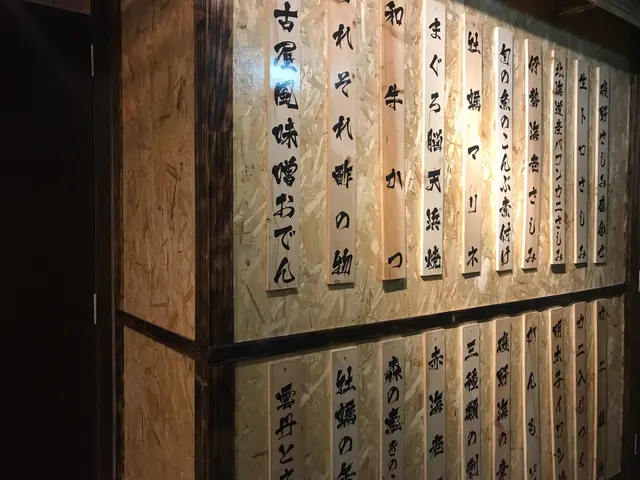 磯野さしみ盛合せ
生トロさしみ
北海道産バフンウニさしみ
伊勢海老さしみ
旬の魚のこんぶ煮付け
牡蠣マリネ
まぐろ脳天浜焼
和牛かつ
れそれ酢の物
古屋風味噌おでん
カニ入りつく
明太子イワシ
がんも
磯野海の幸
三種類の刺
赤海老
森の
牡蠣の
雲丹と